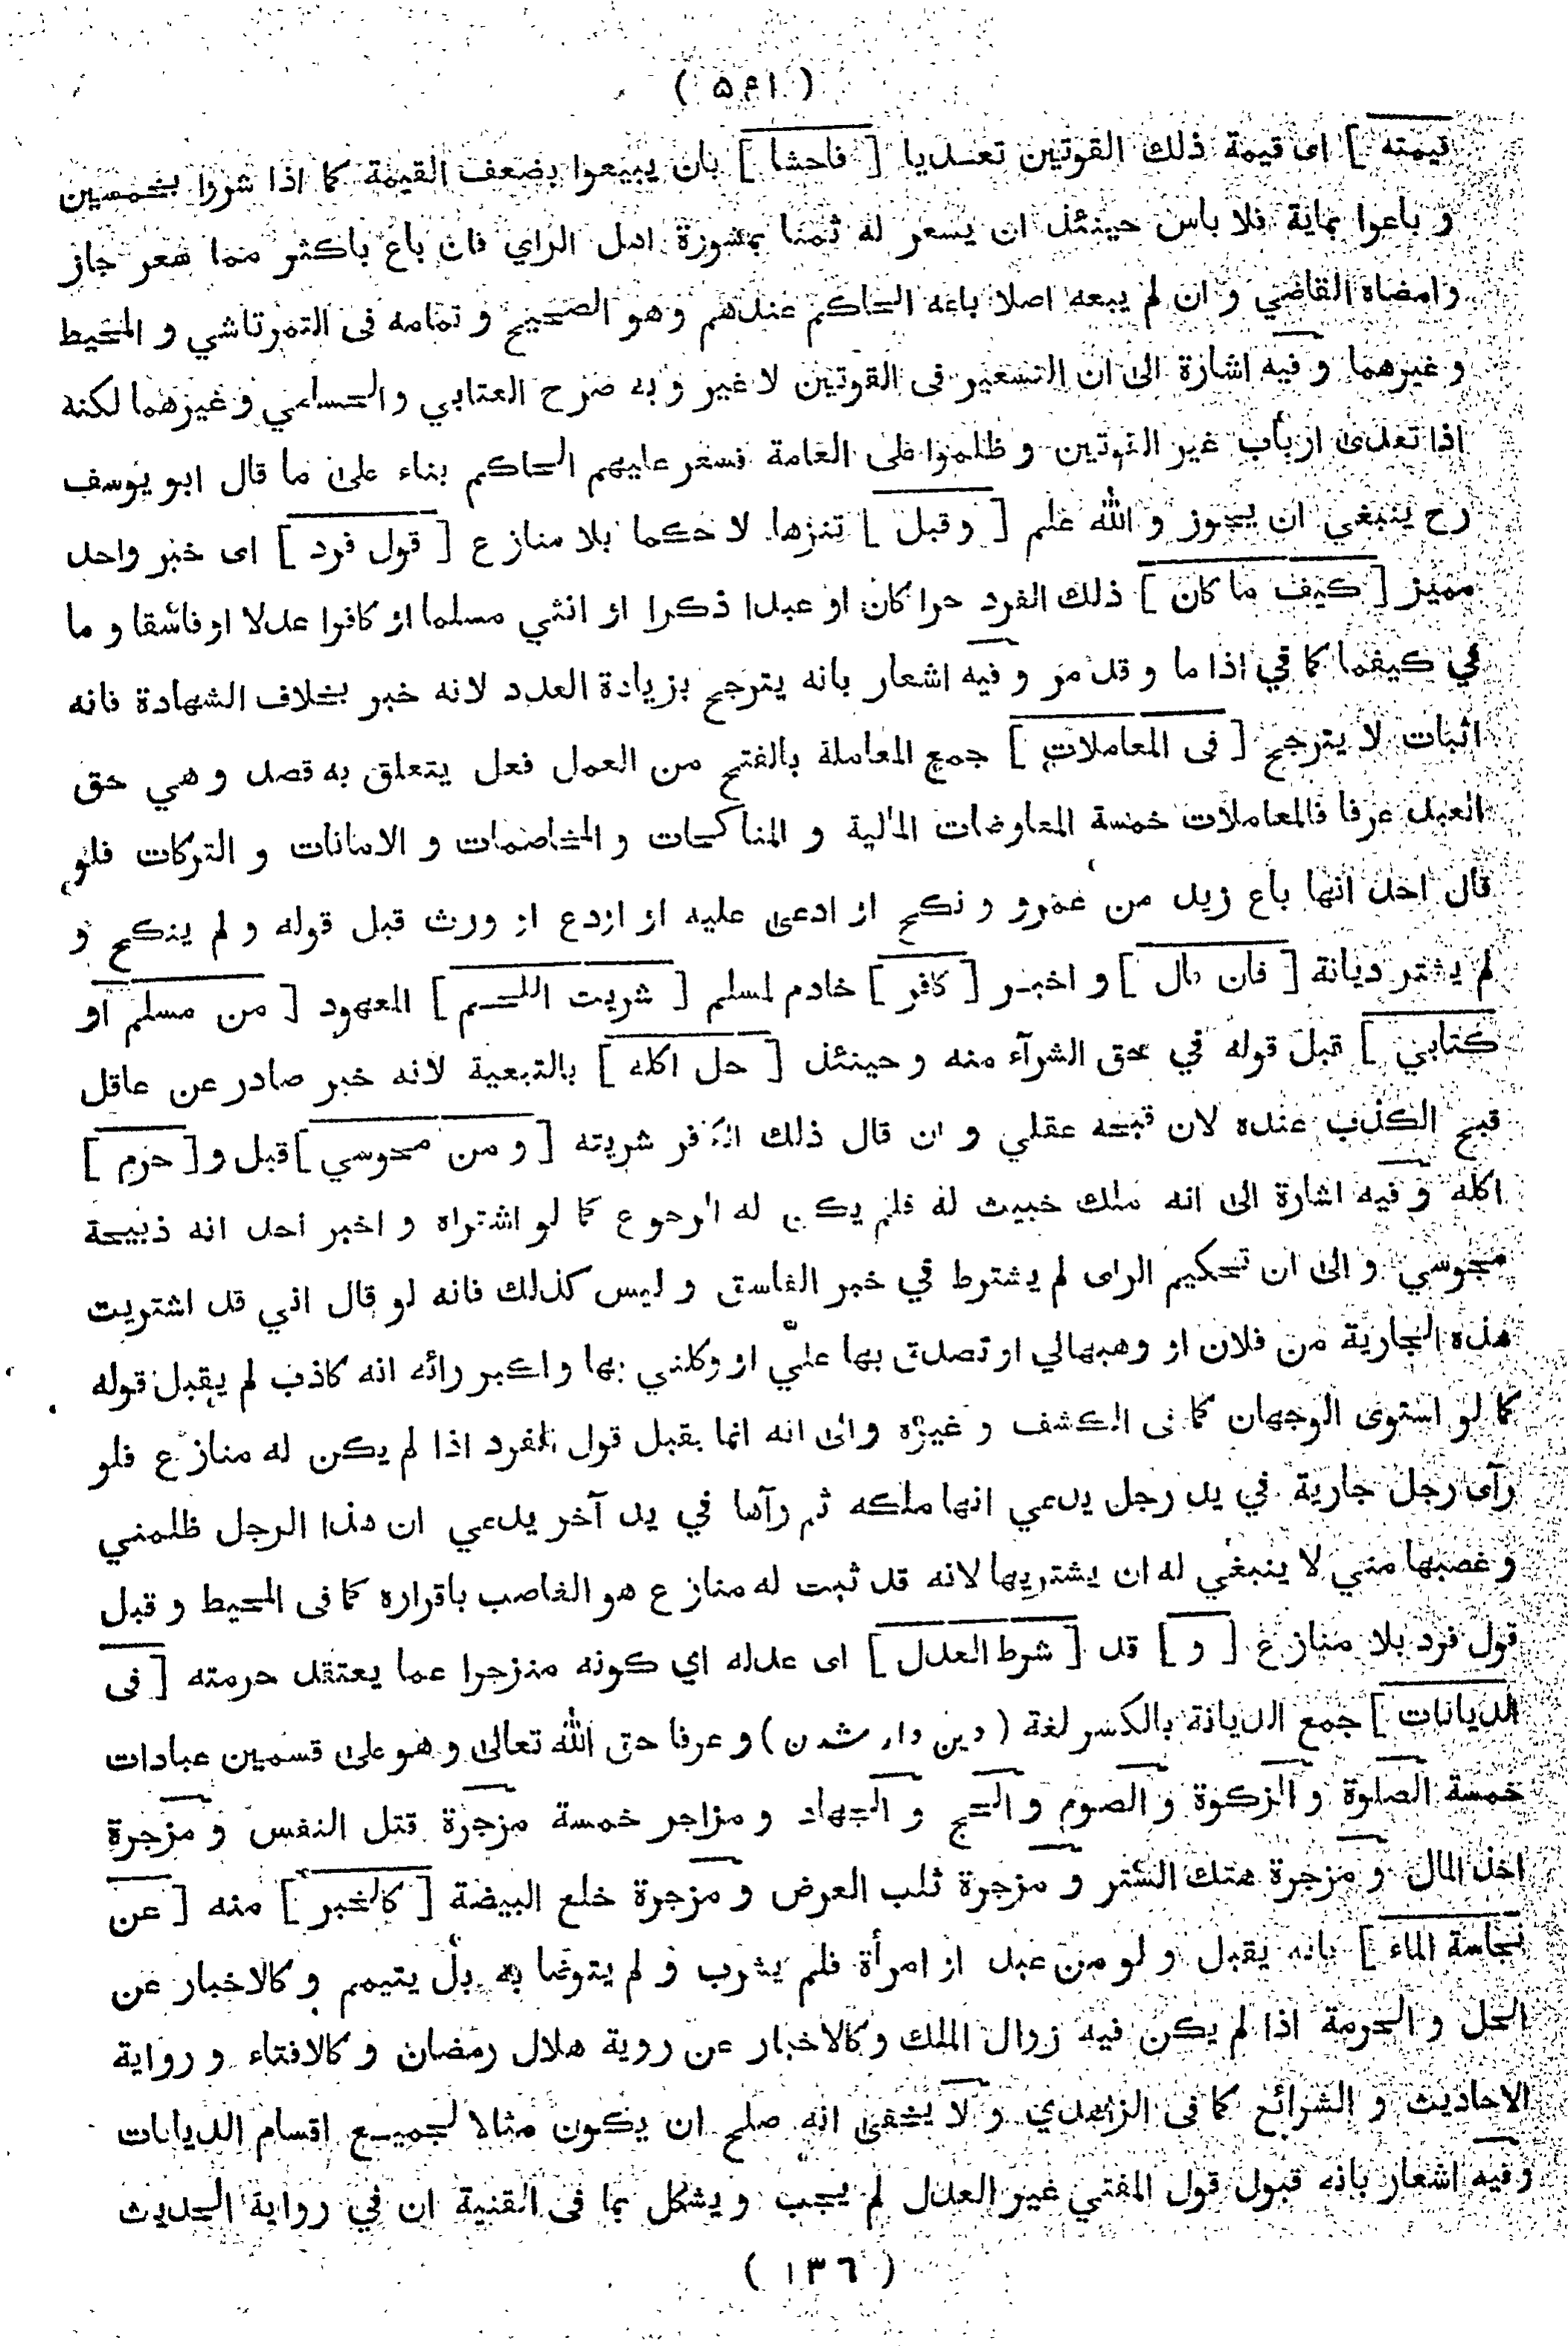 ( ۵۶۱ )
قيمته ] اى قيمة ذلك القوتين تعديا [ فاحشا ] بان يبيعوا بضعف القيمة كما اذا شروا بخمسين
و باعوا بماية فلا باس حينئذ ان يسعر له ثمنا بمشورة اهل الراي فان باع باكثر مما سعر جاز
وامضاه القاضي و ان لم يبعه اصلا باعه الحاكم عندهم وهو الصحيح و تمامه فى التمرتاشي و المحيط
و غيرهما و فيه اشارة الى ان التسعير فى القوتين لا غير و به صرح العتابي و الحسامي و غيرهما لكنه
اذا تعدى ارباب غير القوتين و ظلموا على العامة فسعر عليهم الحاكم بناء على ما قال ابو يوسف
رح ينبغي ان يجوز و الله علم [ و قبل ] تنزها لا حكما بلا منازع [ قول فرد ] اى خبر واحد
مميز [ كيف ما كان ] ذلك الفرد حرا كان او عبدا ذكرا او انثي مسلما او كافرا عدلا او فاسقا و ما
في كيفما كما في اذا ما و قد مر و فيه اشعار بانه يترجح بزيادة العدد لانه خبر بخلاف الشهادة فانه
اثبات لا يترجح [ فى المعاملات ] جمع المعاملة بالفتح من العمل فعل يتعلق به قصد و هي حق
العبد عرفا فالمعاملات خمسة المعاوضات المالية و المناكحات و المخاصمات و الامانات و التركات فلو
قال احد انها باع زيد من عمرو و نكح او ادعى عليه او اودع او ورث قبل قوله و لم ينكح و
لم يشتر ديانة [ فان قال ] و اخبر [ كافر ] خادم لمسلم [ شريت اللحم ] المعهود [ من مسلم او
كتابي ] قبل قوله في حق الشرآء منه و حينئذ [ حل اكله ] بالتبعية لانه خبر صادر عن عاقل
قبح الكذب عنده لان قبحه عقلي و ان قال ذلك الكافر شريته [ و من مجوسي ] قبل و [ حرم ]
اكله و فيه اشارة الى انه ملك خبيث له فلم يكن له الرجوع كما لو اشتراه و اخبر احد انه ذبيحة
مجوسي و الى ان تحكيم الراى لم يشترط في خبر الفاسق و ليس كذلك فانه لو قال اني قد اشتريت
هذه الجارية من فلان او وهبهالي او تصدق بها عليّ او وكلني بها و اكبر رائه انه كاذب لم يقبل قوله
كما لو استوى الوجهان كما فى الكشف و غيره والى انه انما يقبل قول الفرد اذا لم يكن له منازع فلو
رآى رجل جارية في يد رجل يدعي انها ملكه ثم رآها في يد آخر يدعي ان هذا الرجل ظلمني
و غصبها مني لا ينبغي له ان يشتريها لانه قد ثبت له منازع هو الغاصب باقراره كما فى المحيط و قبل
قول فرد بلا منازع [ و ] قد [ شرط العدل ] اى عدله اي كونه منزجرا عما يعتقد حرمته [ فى
الديانات ] جمع الديانة بالكسر لغة ( دين دار شدن ) و عرفا حق الله تعالى و هو على قسمين عبادات
خمسة الصلوة و الزكوة و الصوم و الحج و الجهاد و مزاجر خمسة مزجرة قتل النفس و مزجرة
اخذ المال و مزجرة هتك الستر و مزجرة ثلب العرض و مزجرة خلع البيضة [ كالخبر ] منه [ عن
نجاسة الماء ] بانه يقبل و لو من عبد او امرأة فلم يشرب و لم يتوضا به بل يتيمم و كالاخبار عن
الحل و الحرمة اذا لم يكن فيه زوال الملك و كالاخبار عن روية هلال رمضان و كالافتاء و رواية
الاحاديث و الشرائع كما فى الزاهدي و لا يخفى انه صلح ان يكون مثالا لجميع اقسام الديانات
و فيه اشعار بانه قبول قول المفتي غير العدل لم يجب و يشكل بما فى القنية ان في رواية الحديث
( ١٣٦ )